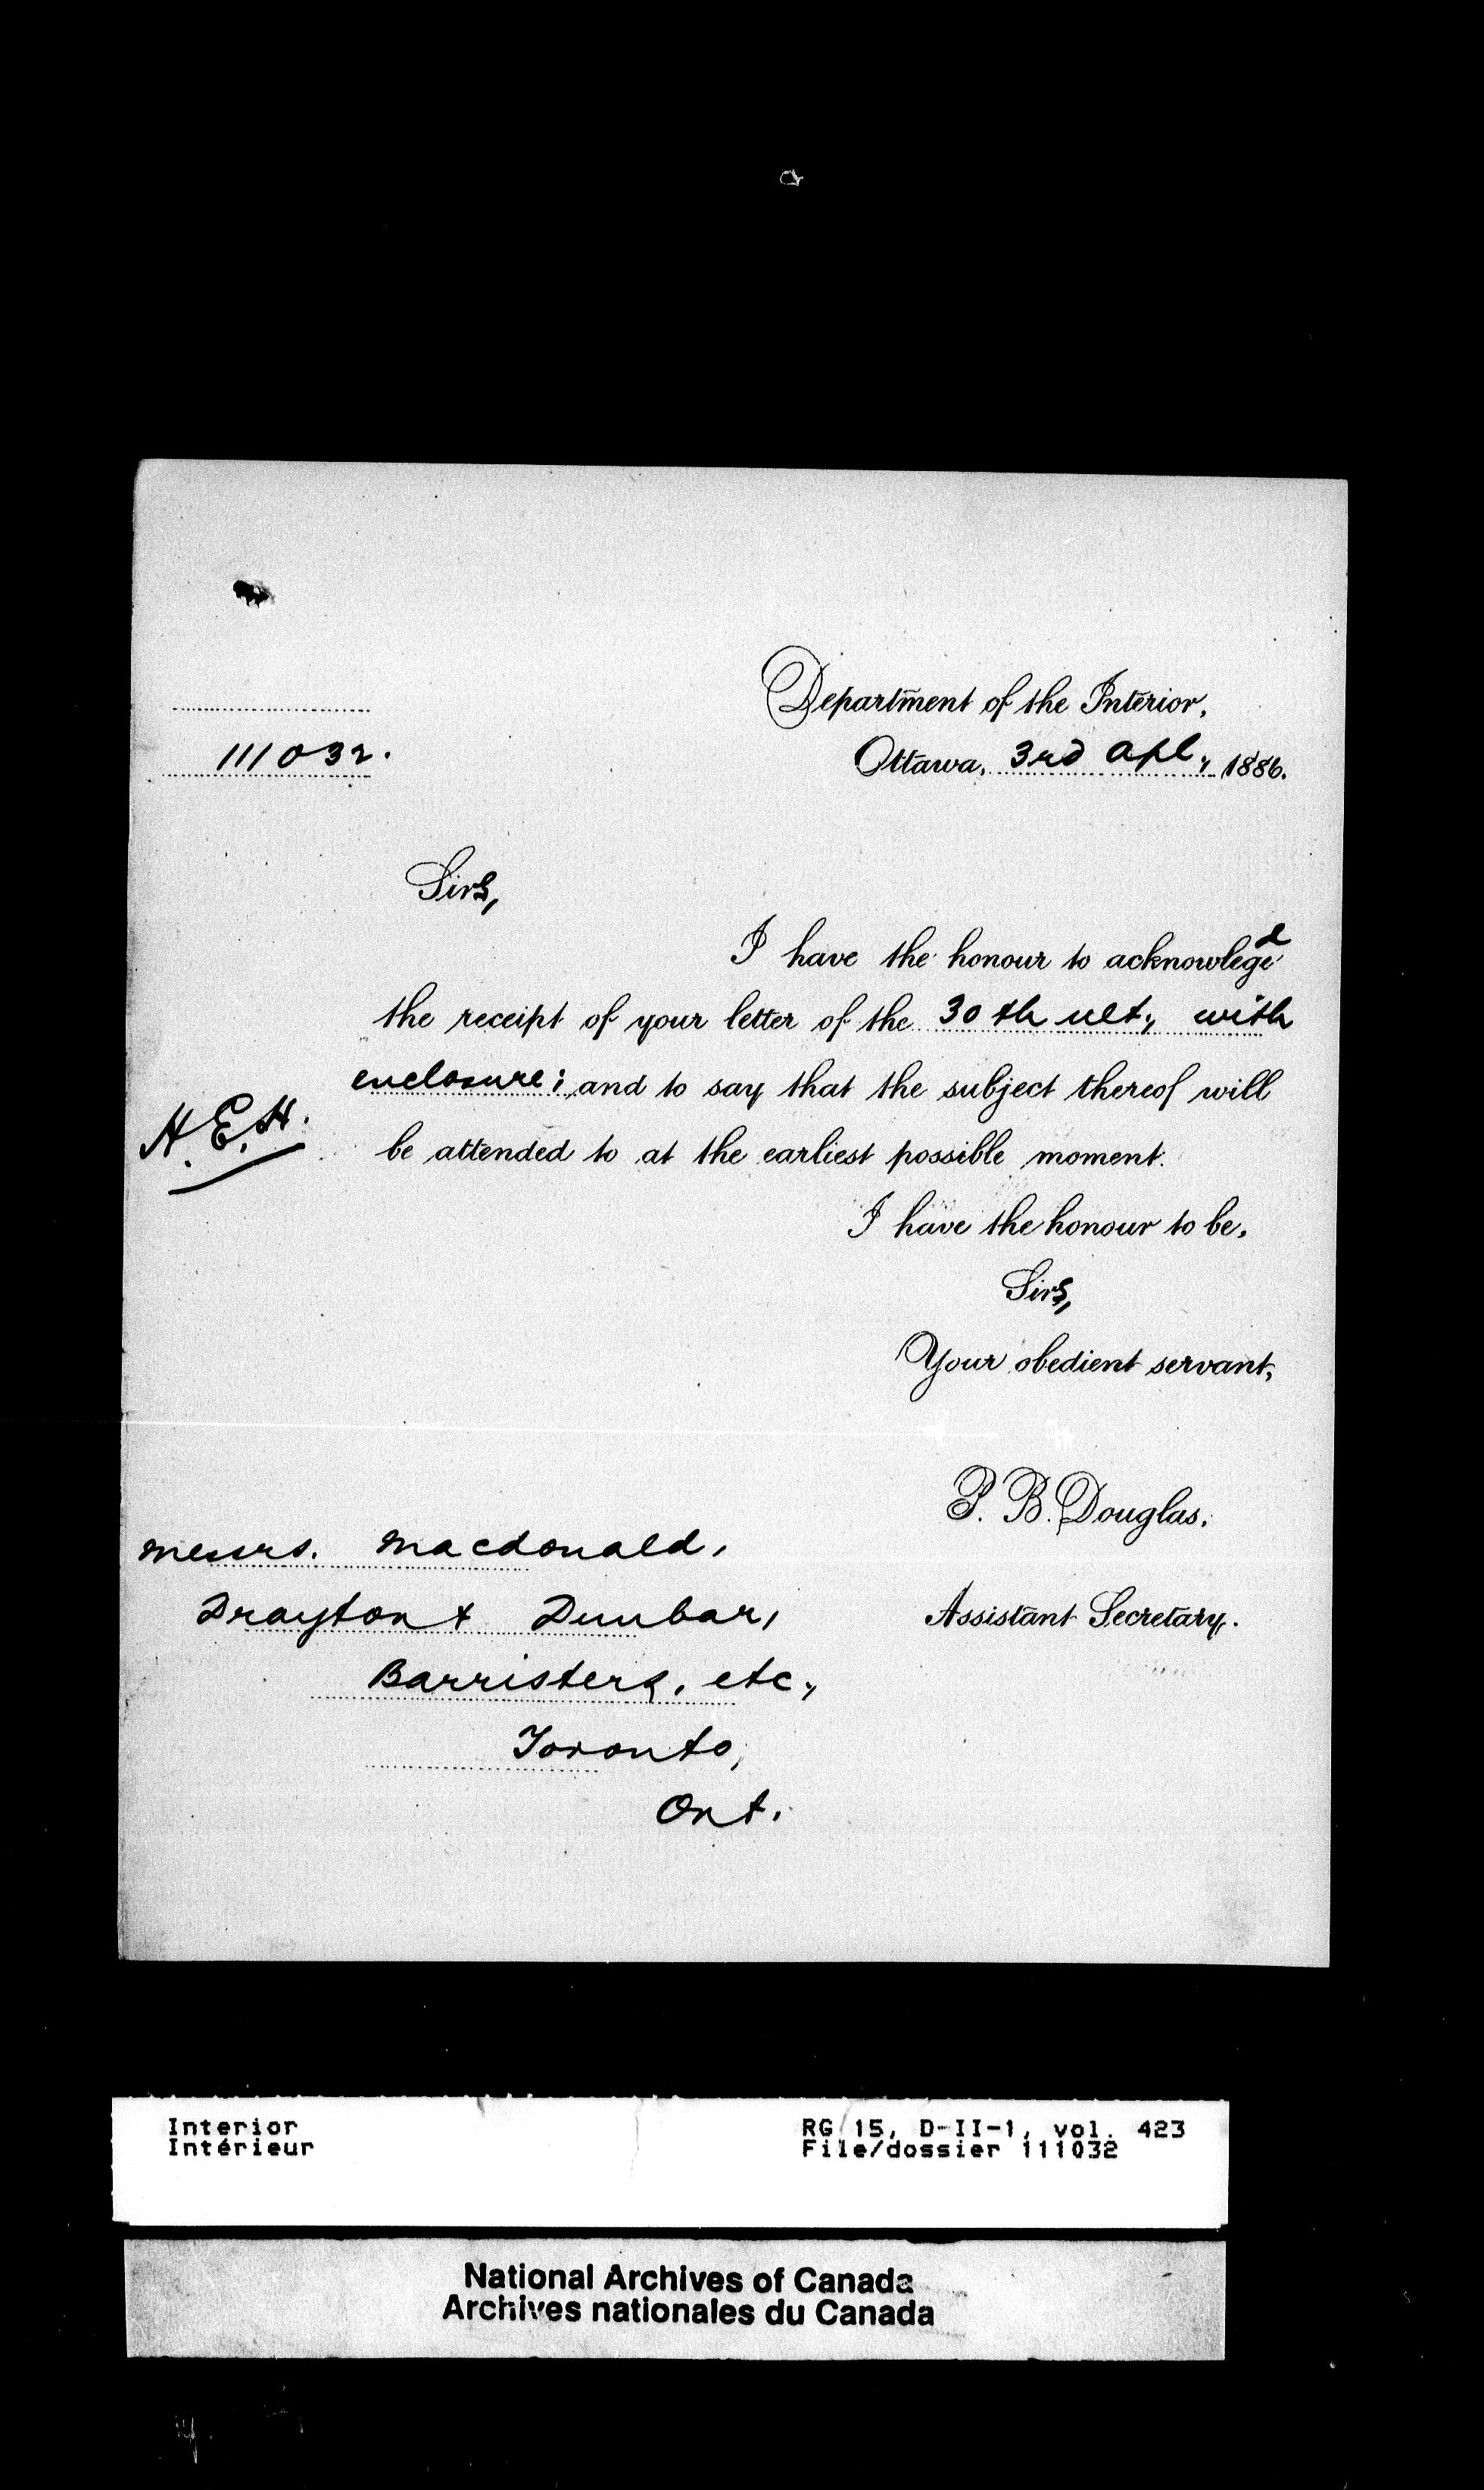 Department of the Interior,
111032.
Ottawa, 3rd Apl., 1886.
Sirs,
I have the honour to acknowledge
the receipt of your letter of the 30th ult., with
enclosure; and to say that the subject thereof will
H.E.H.
be attended to at the earliest possible moment.
I have the honour to be,
Sirs,
Your obedient servant,
P. B. Douglas,
Assistant Secretary.
Messrs. Macdonald,
Drayton & Dunbar,
Barristers, etc.,
Toronto,
Ont.
Interior
Intérieur
RG 15, D-II-1, vol. 423
File/dossier 111032
National Archives of Canada
Archives nationales du Canada